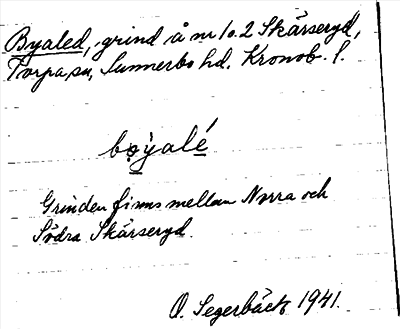 Byaled, grind å nr 1 o. 2 Skärseryd,
Torpa sn, Sunnerbo hd. Kronob. l.
bo̤yalé̱
Grinden finns mellan Norra och
Södra Skärseryd.
O. Segerbäck 1941.